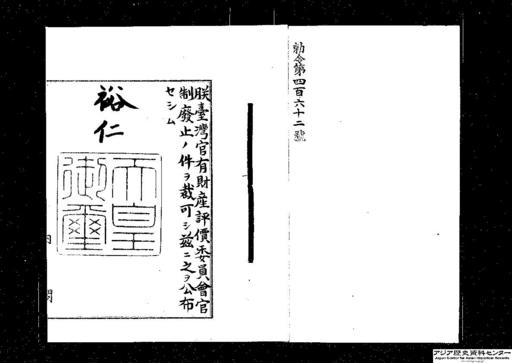 勅令第四百六十二號
朕臺灣官有財產評價委員會官
制廢止ノ件ヲ裁可シ茲ニ之ヲ公布
セシム
裕仁
天皇
御璽
内閣
アジア歴史資料センター
Japan Center for Asian Historical Records